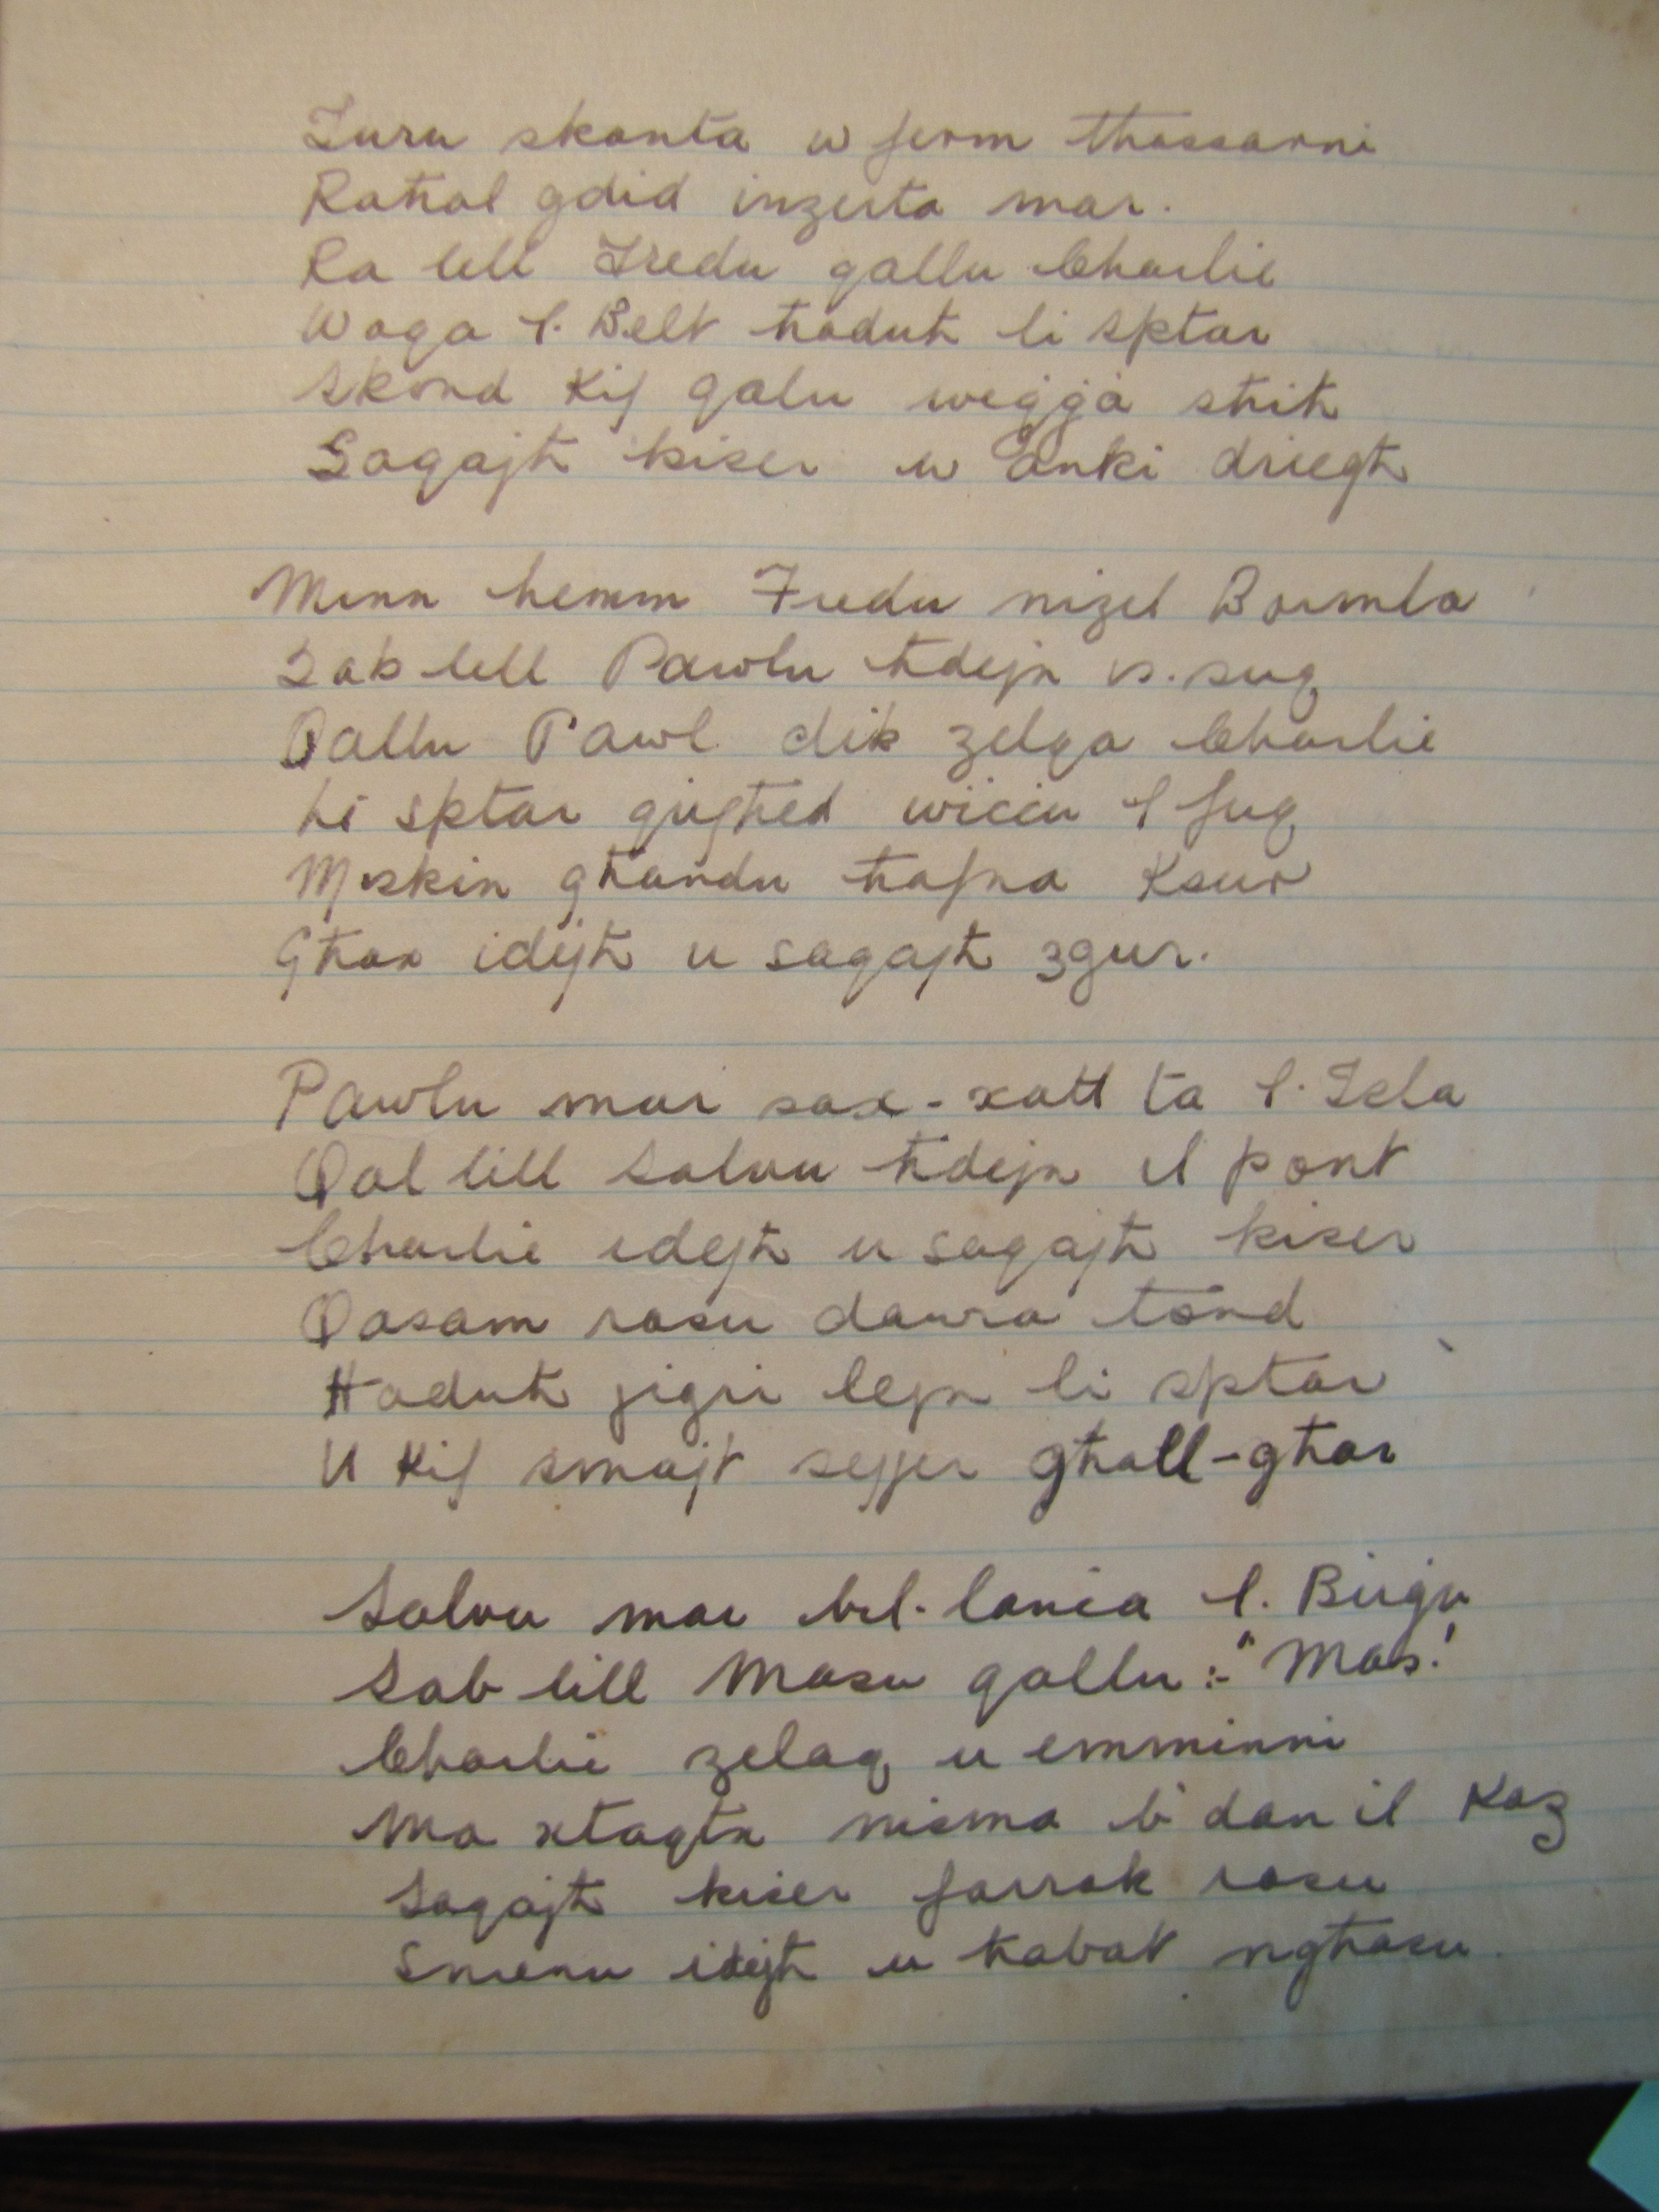 Zuru skonta u ferm thassarni
Raħal ġdid inzerta mar.
Ra lell Fredu qallu Charlie
Waqa l. Belt ħaduh li sptar
Skond kif qalu weġġa sħiħ
Saqajh kiser u anki driegħ

Minn hemm Fredu nizel Bormla
Sab lell Pawlu ħdejn is. suq
Qallu Pawl dik zelqa Charlie
Li sptar qiegħed wiċċu l fuq
Miskin għandu ħafna ksur
Għax idejh u saqajh zgur.

Pawlu mar sax-xatt ta l. Isla
Qal lill Salvu ħdejn il pont
Charlie idejh u saqajh kiser
Qasam rasu dawra tond
Ħaduh jiġri lejn li sptar
U kif smajt sejjer għall-għar

Salvu mar bil-lanċa l. Birgu
Sab lill Masu qallu :- "Mas!
Charlie zelaq u emminni
Ma xtaqtx nisma b' dan il kaz
Saqajh kiser farrak rasu
Snienu idejh u ħabat ngħasu.